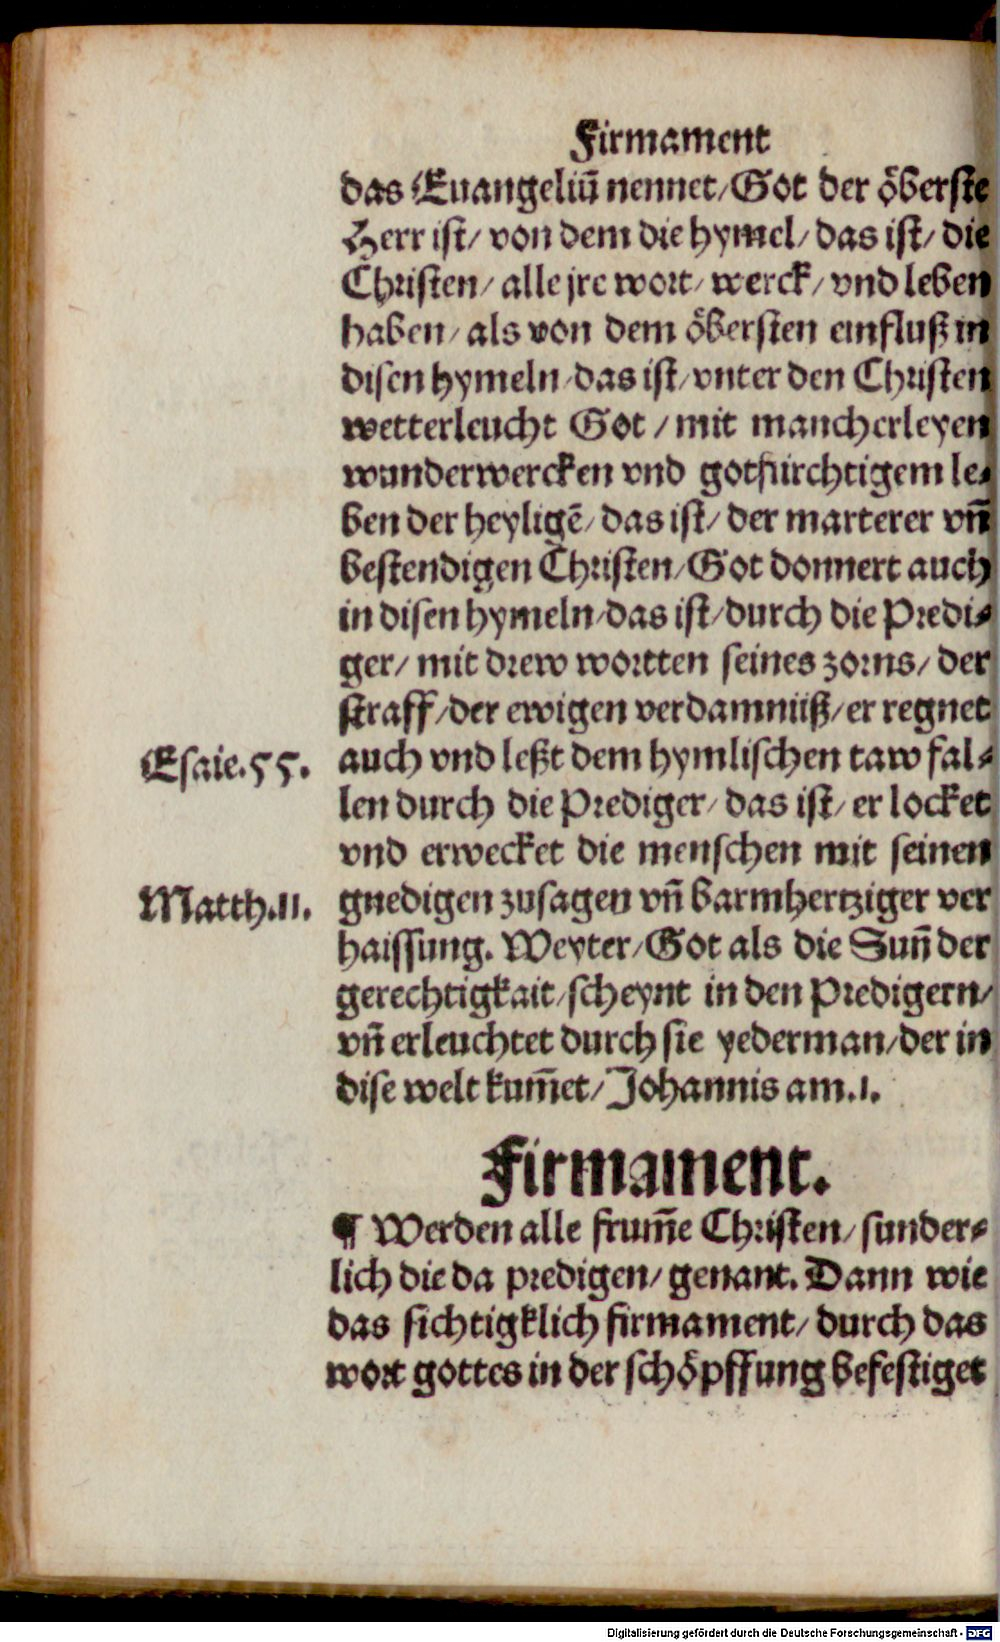 Firmament
das Euangeliū nennet/Got der öberste
Herr ist/ von dem die hymel/ das ist/ die
Christen/ alle jre wort/ werck/ vnd leben
haben/ als von dem öbersten einfluß in
disen hymeln/das ist/vnter den Christen
wetterleucht Got / mit mancherleyen
wunderwercken vnd gotfürchtigem le⸗
ben der heyligē/ das ist/ der marterer vñ
bestendigen Christen/Got donnert auch
in disen hymeln/das ist/durch die Predi⸗
ger/ mit drew wortten seines zorns/ der
straff/der ewigen verdamnüß/er regnet
Esaie.55.
auch vnd leßt dem hymlischen taw fal⸗
len durch die Prediger/ das ist/ er locket
vnd erwecket die menschen mit seinen
Matth.11.
gnedigen zusagen vñ barmhertziger ver
haissung. Weyter/Got als die Suñ der
gerechtigkait/scheynt in den Predigern/
vñ erleuchtet durch sie yederman/der in
dise welt kum̄et/Johannis am.1.
Firmament.
¶ Werden alle frum̄e Christen/ sunder⸗
lich die da predigen/ genant. Dann wie
das sichtigklich firmament/ durch das
wort gottes in der schöpffung befestiget
Digitalisierung gefördert durch die Deutsche Forschungsgemeinschaft - DFG